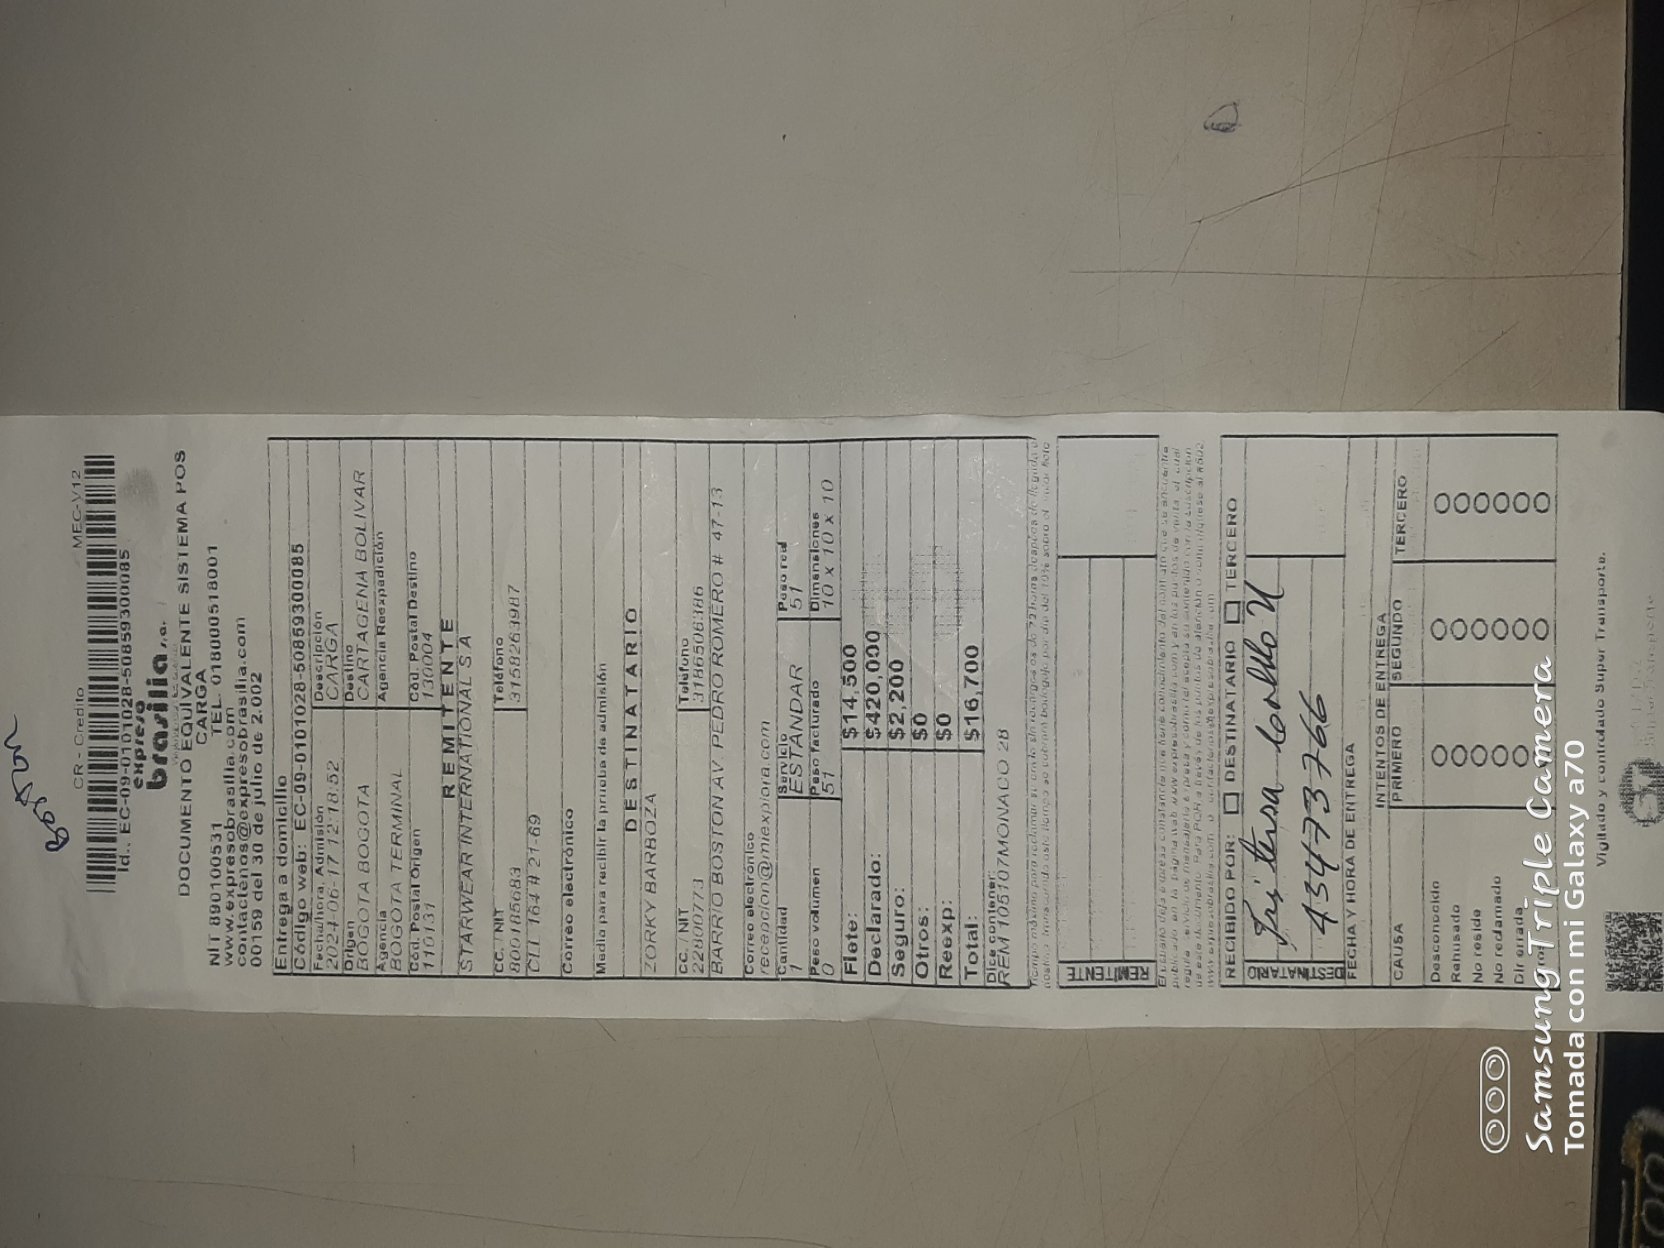 Boston
CR - Credito MEC-V12
Id.. EC-09-0101028-50859300085
expreso
brasilia s.a.
DOCUMENTO EQUIVALENTE SISTEMA POS
CARGA
NIT 890100531 TEL. 018000518001
www.expresobrasilia.com
contactenos@expresobrasilia.com
00159 del 30 de julio de 2.002
Entrega a domicilio
Código web: EC-09-0101028-50859300085
Fecha/hora, Admisión Descripción
2024-06-17 12:18:52 CARGA
Origen Destino
BOGOTA BOGOTA CARTAGENA BOLIVAR
Agencia Agencia Reexpedición
BOGOTA TERMINAL
Cód. Postal Origen Cód. Postal Destino
110131 130004
REMITENTE
STARWEAR INTERNATIONAL S A
CC. / NIT Teléfono
800185683 3158263987
CLL 164 # 21-69
Correo electrónico
Medio para recibir la prueba de admisión
DESTINATARIO
ZORKY BARBOZA
CC. / NIT Teléfono
22800773 3186506386
BARRIO BOSTON AV PEDRO ROMERO # 47-13
Correo electrónico
recepcion@miexplora.com
Cantidad Servicio Peso real
1 ESTANDAR 51
Peso volumen Peso facturado Dimensiones
0 51 10 x 10 x 10
Flete: $14,500
Declarado: $420,000
Seguro: $2,200
Otros: $0
Reexp: $0
Total: $16,700
Dice contener:
REM 105107MONACO 28
REMITENTE
RECIBIDO POR: DESTINATARIO TERCERO
DESTINATARIO
43473766
FECHA Y HORA DE ENTREGA
INTENTOS DE ENTREGA
CAUSA PRIMERO SEGUNDO TERCERO
Desconocido
Rehusado
No reside
No redamado
Dir errada
Vigilado y controlado Super Transporte.
Samsung Triple Camera
Tomada con mi Galaxy a70